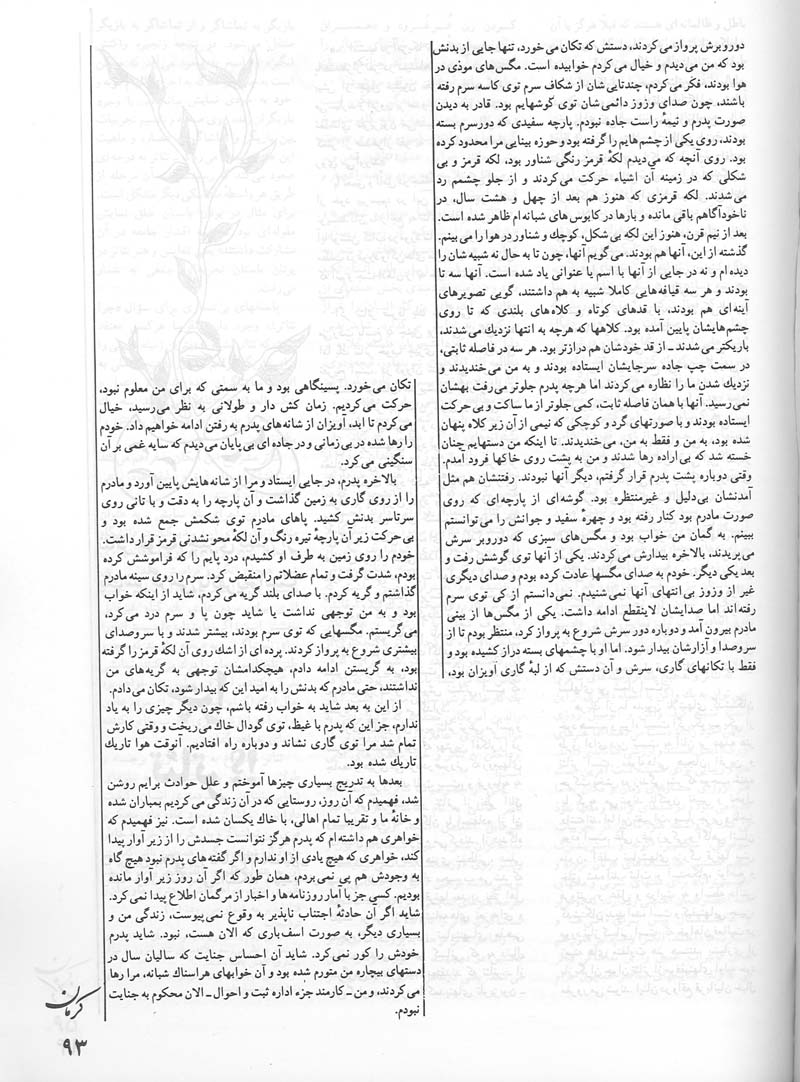 دوروبرش پرواز می‌کردند، دستش که تکان می‌خورد، تنها جایی از بدنش
بود که من می‌دیدم و خیال می‌کردم خوابیده است. مگس‌های موذی در
هوا بودند، فکر می‌کردم، چندتایی‌شان از شکاف سرم توی کاسه سرم رفته
باشند، چون صدای وزوز دائمی‌شان توی گوشهایم بود. قادر به دیدن
صورت پدرم و نیمهٔ راست جاده نبودم. پارچه سفیدی که دورسرم بسته
بودند، روی یکی از چشم‌هایم را گرفته بود و حوزه بینایی مرا محدود کرده
بود. روی آنچه که می‌دیدم لکهٔ قرمز رنگی شناور بود، لکه قرمز و بی
شکلی که در زمینه آن اشیاء حرکت می‌کردند و از جلو چشمم رد
می‌شدند. لکه قرمزی که هنوز هم بعد از چهل و هشت سال، در
ناخودآگاهم باقی مانده و بارها در کابوس‌های شبانه‌ام ظاهر شده است.
بعد از نیم قرن، هنوز این لکه بی‌شکل، کوچک و شناور در هوا را می‌بینم.
گذشته از این، آنها هم بودند. می‌گویم آنها، چون تا به حال نه شبیه‌شان را
دیده‌ام و نه در جایی از آنها با اسم یا عنوانی یاد شده است. آنها سه تا
بودند و هر سه قیافه‌هایی کاملا شبیه به هم داشتند، گویی تصویرهای
آینه‌ای هم بودند، با قدهای کوتاه و کلاه‌های بلندی که تا روی
چشم‌هایشان پایین آمده بود. کلاهها که هرچه به انتها نزدیک می‌شدند،
باریکتر می‌شدند ـ از قد خودشان هم درازتر بود. هر سه در فاصله ثابتی،
در سمت چپ جاده سرجایشان ایستاده بودند و به من می‌خندیدند و
نزدیک شدن ما را نظاره می‌کردند اما هرچه پدرم جلوتر می‌رفت بهشان
نمی‌رسید. آنها با همان فاصله ثابت، کمی جلوتر از ما ساکت و بی‌حرکت
ایستاده بودند و با صورتهای گرد و کوچکی که نیمی از آن زیر کلاه پنهان
شده بود، به من و فقط به من، می‌خندیدند. تا اینکه من دستهایم چنان
خسته شد که بی‌اراده رها شدند و من به پشت روی خاکها فرود آمدم.
وقتی دوباره پشت پدرم قرار گرفتم، دیگر آنها نبودند. رفتنشان هم مثل
آمدنشان بی‌دلیل و غیرمنتظره بود. گوشه‌ای از پارچه‌ای که روی
صورت مادرم بود کنار رفته بود و چهرهٔ سفید و جوانش را می‌توانستم
ببینم. به گمان من خواب بود و مگس‌های سبزی که دوروبر سرش
می‌پریدند، بالاخره بیدارش می‌کردند. یکی از آنها توی گوشش رفت و
بعد یکی دیگر. خودم به صدای مگسها عادت کرده بودم و صدای دیگری
غیر از وزوز بی‌انتهای آنها نمی‌شنیدم. نمی‌دانستم از کی توی سرم
رفته‌اند اما صدایشان لاینقطع ادامه داشت. یکی از مگس‌ها از بینی
مادرم بیرون آمد و دوباره دور سرش شروع به پرواز کرد، منتظر بودم تا از
سروصدا و آزارشان بیدار شود. اما او با چشمهای بسته دراز کشیده بود و
فقط با تکانهای گاری، سرش و آن دستش که از لبهٔ گاری آویزان بود،
تکان می‌خورد. پسینگاهی بود و ما به سمتی که برای من معلوم نبود،
حرکت می‌کردیم. زمان کش دار و طولانی به نظر می‌رسید، خیال
می‌کردم تا ابد، آویزان از شانه‌های پدرم به رفتن ادامه خواهیم داد. خودم
را رها شده در بی‌زمانی و در جاده ای بی‌پایان می‌دیدم که سایه غمی بر آن
سنگینی می‌کرد.
بالاخره پدرم، در جایی ایستاد و مرا از شانه‌هایش پایین آورد و مادرم
را از روی گاری به زمین گذاشت و آن پارچه را به دقت و با تانی روی
سرتاسر بدنش کشید. پاهای مادرم توی شکمش جمع شده بود و
بی‌حرکت زیر آن پارچهٔ تیره رنگ و آن لکهٔ محو نشدنی قرمز قرار داشت.
خودم را روی زمین به طرف او کشیدم، درد پایم را که فراموش کرده
بودم، شدت گرفت و تمام عضلاتم را منقبض کرد. سرم را روی سینه مادرم
گذاشتم و گریه کردم. با صدای بلند گریه می‌کردم، شاید از اینکه خواب
بود و به من توجهی نداشت یا شاید چون پا و سرم درد می‌کرد،
می‌گریستم. مگسهایی که توی سرم بودند، بیشتر شدند و با سروصدای
بیشتری شروع به پرواز کردند. پرده ای از اشک روی آن لکهٔ قرمز را گرفته
بود، به گریستن ادامه دادم، هیچکدامشان توجهی به گریه‌های من
نداشتند، حتی مادرم که بدنش را به امید این که بیدار شود، تکان می‌دادم.
از این به بعد شاید به خواب رفته باشم، چون دیگر چیزی را به یاد
ندارم، جز این که پدرم با غیظ، توی گودال خاک می‌ریخت و وقتی کارش
تمام شد مرا توی گاری نشاند و دوباره راه افتادیم. آنوقت هوا تاریک
تاریک شده بود.
بعدها به تدریج بسیاری چیزها آموختم و علل حوادث برایم روشن
شد، فهمیدم که آن روز، روستایی که در آن زندگی می‌کردیم بمباران شده
و خانهٔ ما و تقریبا تمام اهالی، با خاک یکسان شده است. نیز فهمیدم که
خواهری هم داشته‌ام که پدرم هرگز نتوانست جسدش را از زیر آوار پیدا
کند، خواهری که هیچ یادی از او ندارم و اگر گفته‌های پدرم نبود هیچ گاه
به وجودش هم پی نمی‌بردم، همان طور که اگر آن روز زیر آوار مانده
بودیم. کسی جز با آمار روزنامه‌ها و اخبار از مرگمان اطلاع پیدا نمی‌کرد.
شاید اگر آن حادثهٔ اجتناب ناپذیر به وقوع نمی‌پیوست، زندگی من و
بسیاری دیگر، به صورت اسف‌باری که الان هست، نبود. شاید پدرم
خودش را کور نمی‌کرد. شاید آن احساس جنایت که سالیان سال در
دستهای بیچاره من متورم شده بود و آن خوابهای هراسناک شبانه، مرا رها
می‌کردند، و من ـ کارمند جزء اداره ثبت و احوال ـ الان محکوم به جنایت
نبودم.
کرمان
۹۳